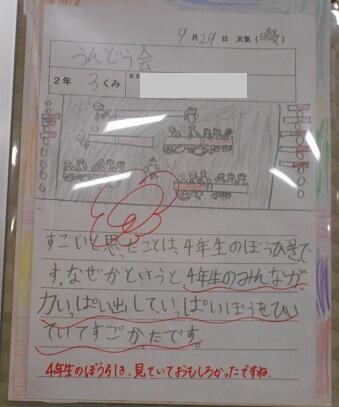 9月29日 天気(晴)
うんどう会
2年 3くみ 名前
すごいと思ったことは、4年生のぼうひきで
す。なぜかというと、4年生のみんなが
力いっぱい出していっぱいぼうをひい
ていてすごかたです。
4年生のぼう引き、見ていておもしろかったですね。